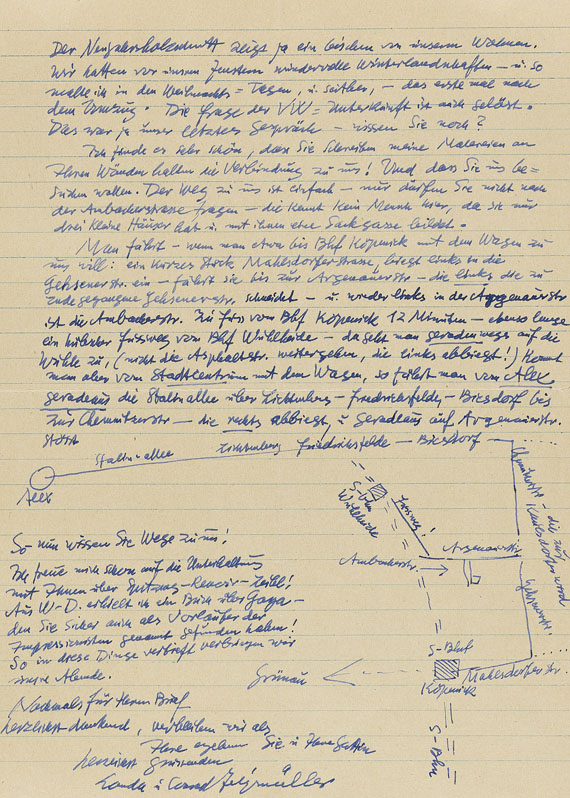 Der Neujahrsholzschnitt zeigt ja ein bischen von unserem Wohnen.
Wir hatten vor unsern Fenstern wundervolle Winterlandschaften – u. so
malte ich in den Weihnachts = Tagen, u. seither, – das erste mal nach
dem Umzug. Die Frage der VW = Unterkunft ist auch gelöst.
Das war ja unser letztes Gespräch – wissen Sie noch?
Ich finde es sehr schön, dass Sie schreiben meine Malereien an
Ihren Wänden halten die Verbindung zu uns! Und dass Sie uns be=
suchen wollen. Der Weg zu uns ist einfach – nur dürfen Sie nicht nach
der Ambacherstrasse fragen – die kennt kein Mensch hier, da sie nur
drei kleine Häuser hat u. mit ihnen eine Sackgasse bildet.
Man fährt – wenn man etwa bis Bhf Köpenick mit dem Wagen zu
uns will: ein kurzes Stück Mahlsdorferstrasse, biegt links in die
Gehsenerstr. ein – fährt sie bis zur Argenauerstr – die links die zu
Ende gegangene Gehsenerstr. schneidet – u. wieder links in der Argenauerstr
ist die Ambacherstr. Zu fuss vom Bhf Köpenick 12 Minuten – ebenso lange
ein hübscher Fussweg vom Bhf Wuhlheide – da geht man geradenwegs auf die
Wuhle zu, (nicht die Asphaltstr. weitergehen, die links abbiegt!) Kommt
man aber vom Stadtcentrum mit dem Wagen, so fährt man vom Alex
geradeaus die Stalinallee über Lichtenberg – Friedrichsfelde – Biesdorf bis
zur Chemnitzerstr – die rechts abbiegt, u geradeaus auf Argenauerstr.
stösst
Stalin-allee Lichtenberg Friedrichsfelde – Biesdorf
Alex
S-Bhn
Wuhlheide
Fussweg!
Chemnitzerstr – die zur
Kaulsdorfer wird
Argenauerstr
Ambacherstr.
Gehsenerstr.
S-Bhf
Köpenick
Mahlsdorferstr.
Grünau
S-Bhn
So nun wissen Sie Wege zu uns!
Ich freue mich schon auf die Unterhaltung
mit Ihnen über
Aus W-D. erhielt ich ein Buch über Goya –
den Sie sicher auch als Vorläufer der
Impressionisten genannt gefunden haben!
So in diese Dinge vertieft verbringen wir
unsere Abende.
Nochmals für Ihren Brief
herzlichst dankend, verbleiben wir als
Ihre ergebenen Sie u Ihren Gatten
herzlichst Grüssenden
u Conrad Felixmüller